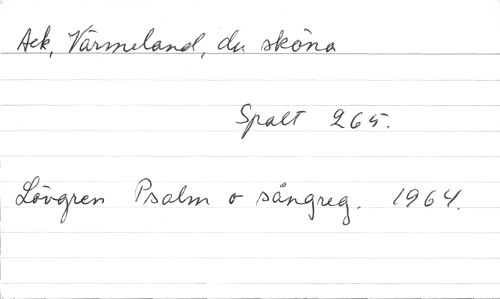 Ack, Värmeland, du sköna
Spalt 265.
Lövgren Psalm o sångreg. 1964.